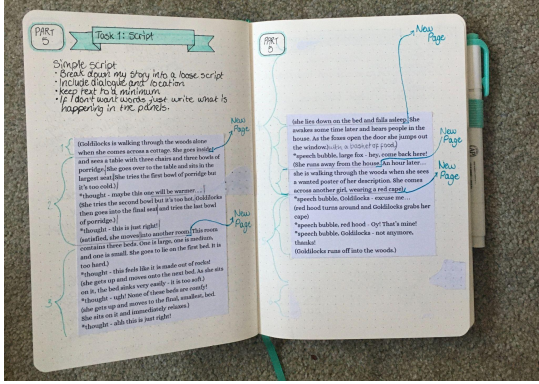 PART
5
Task 1: Script
Simple script
• Break down my story into a loose script
• Include dialogue and location
• keep text to a minimum
• If I don't want words just write what is
happening in the panels.
New
Page
(Goldilocks is walking through the woods alone
when she comes across a cottage. She goes inside
and sees a table with three chairs and three bowls of
porridge. She goes over to the table and sits in the
largest seat. She tries the first bowl of porridge but
it's too cold.)
*thought - maybe this one will be warmer...
(She tries the second bowl but it's too hot. Goldilocks
then goes into the final seat and tries the last bowl
of porridge.)
*thought - this is just right!
New
Page
(satisfied, she moves into another room. This room
contains three beds. One is large, one is medium,
and one is small. She goes to lie on the first bed. It is
too hard.)
*thought - this feels like it is made out of rocks!
(she gets up and moves onto the next bed. As she sits
on it, the bed sinks very easily - it is too soft.)
*thought - ugh! None of these beds are comfy!
(she gets up and moves to the final, smallest, bed.
She sits on it and immediately relaxes.)
*thought - ahh this is just right!
1
2
3
PART
5
New
Page
(she lies down on the bed and falls asleep. She
awakes some time later and hears people in the
house. As the foxes open the door she jumps out
the window. with a basket of food)
*speech bubble, large fox - hey, come back here!
(She runs away from the house. An hour later...
she is walking through the woods when she sees
a wanted poster of her description. She comes
across another girl, wearing a red cape)
New
Page
*speech bubble, Goldilocks - excuse me...
(red hood turns around and Goldilocks grabs her
cape)
*speech bubble, red hood - Oy! That's mine!
*speech bubble, Goldilocks - not anymore,
thanks!
(Goldilocks runs off into the woods.)